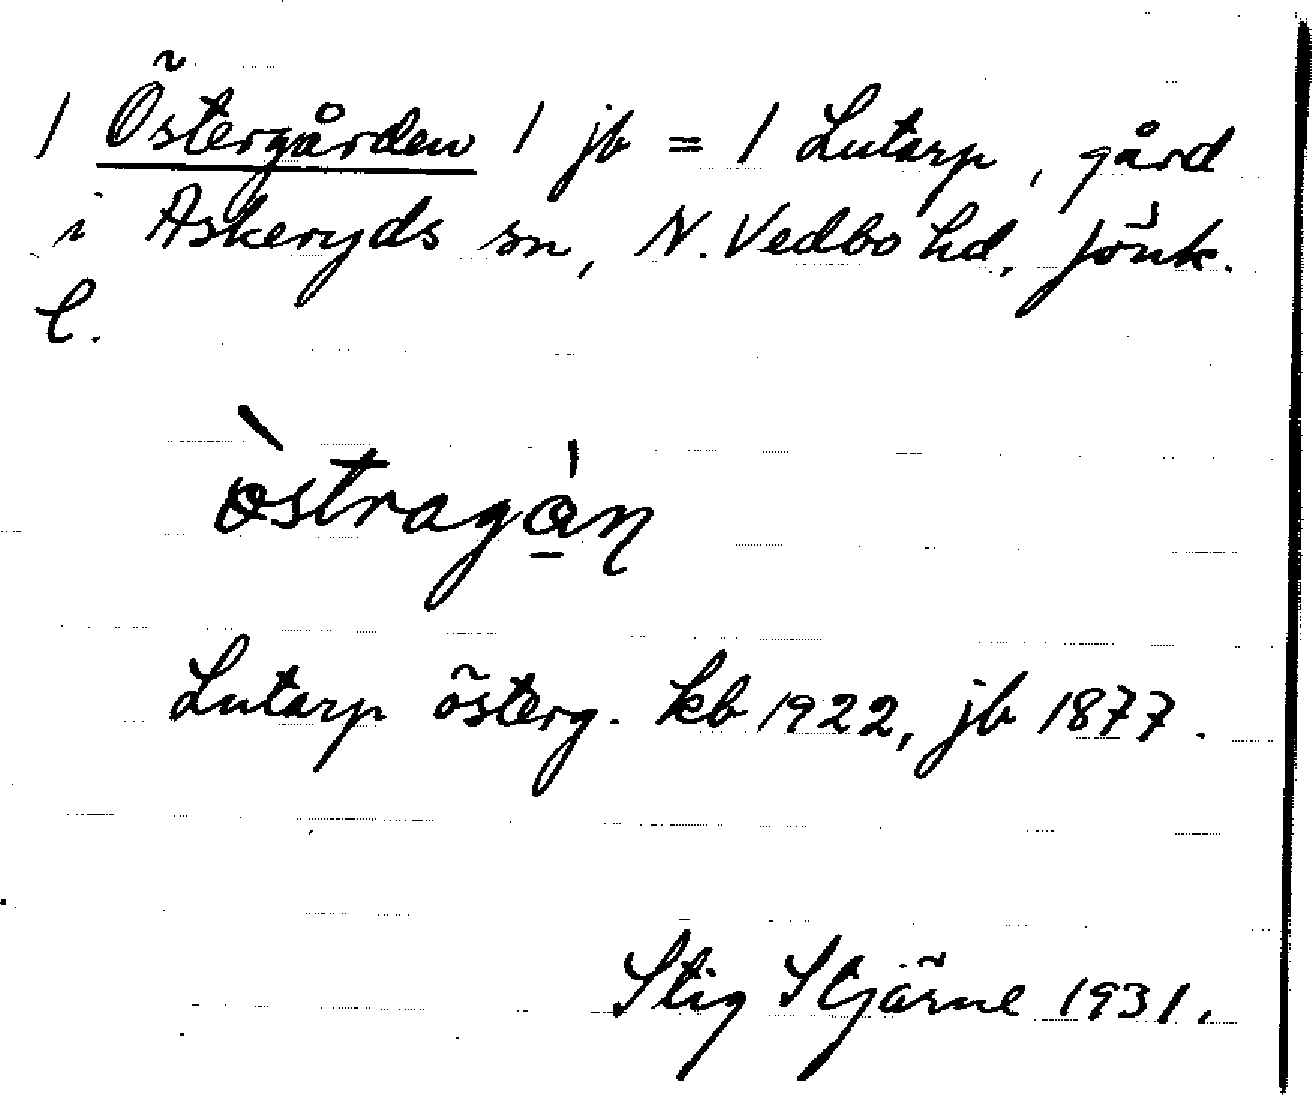 / Östergården / jb = / Lutarp, gård
i Askeryds sn, N. Vedbo hd, Jönk.
l.
òstragán
Lutarp österg. kb 1922, jb 1877.
Stig Stjärne 1931.